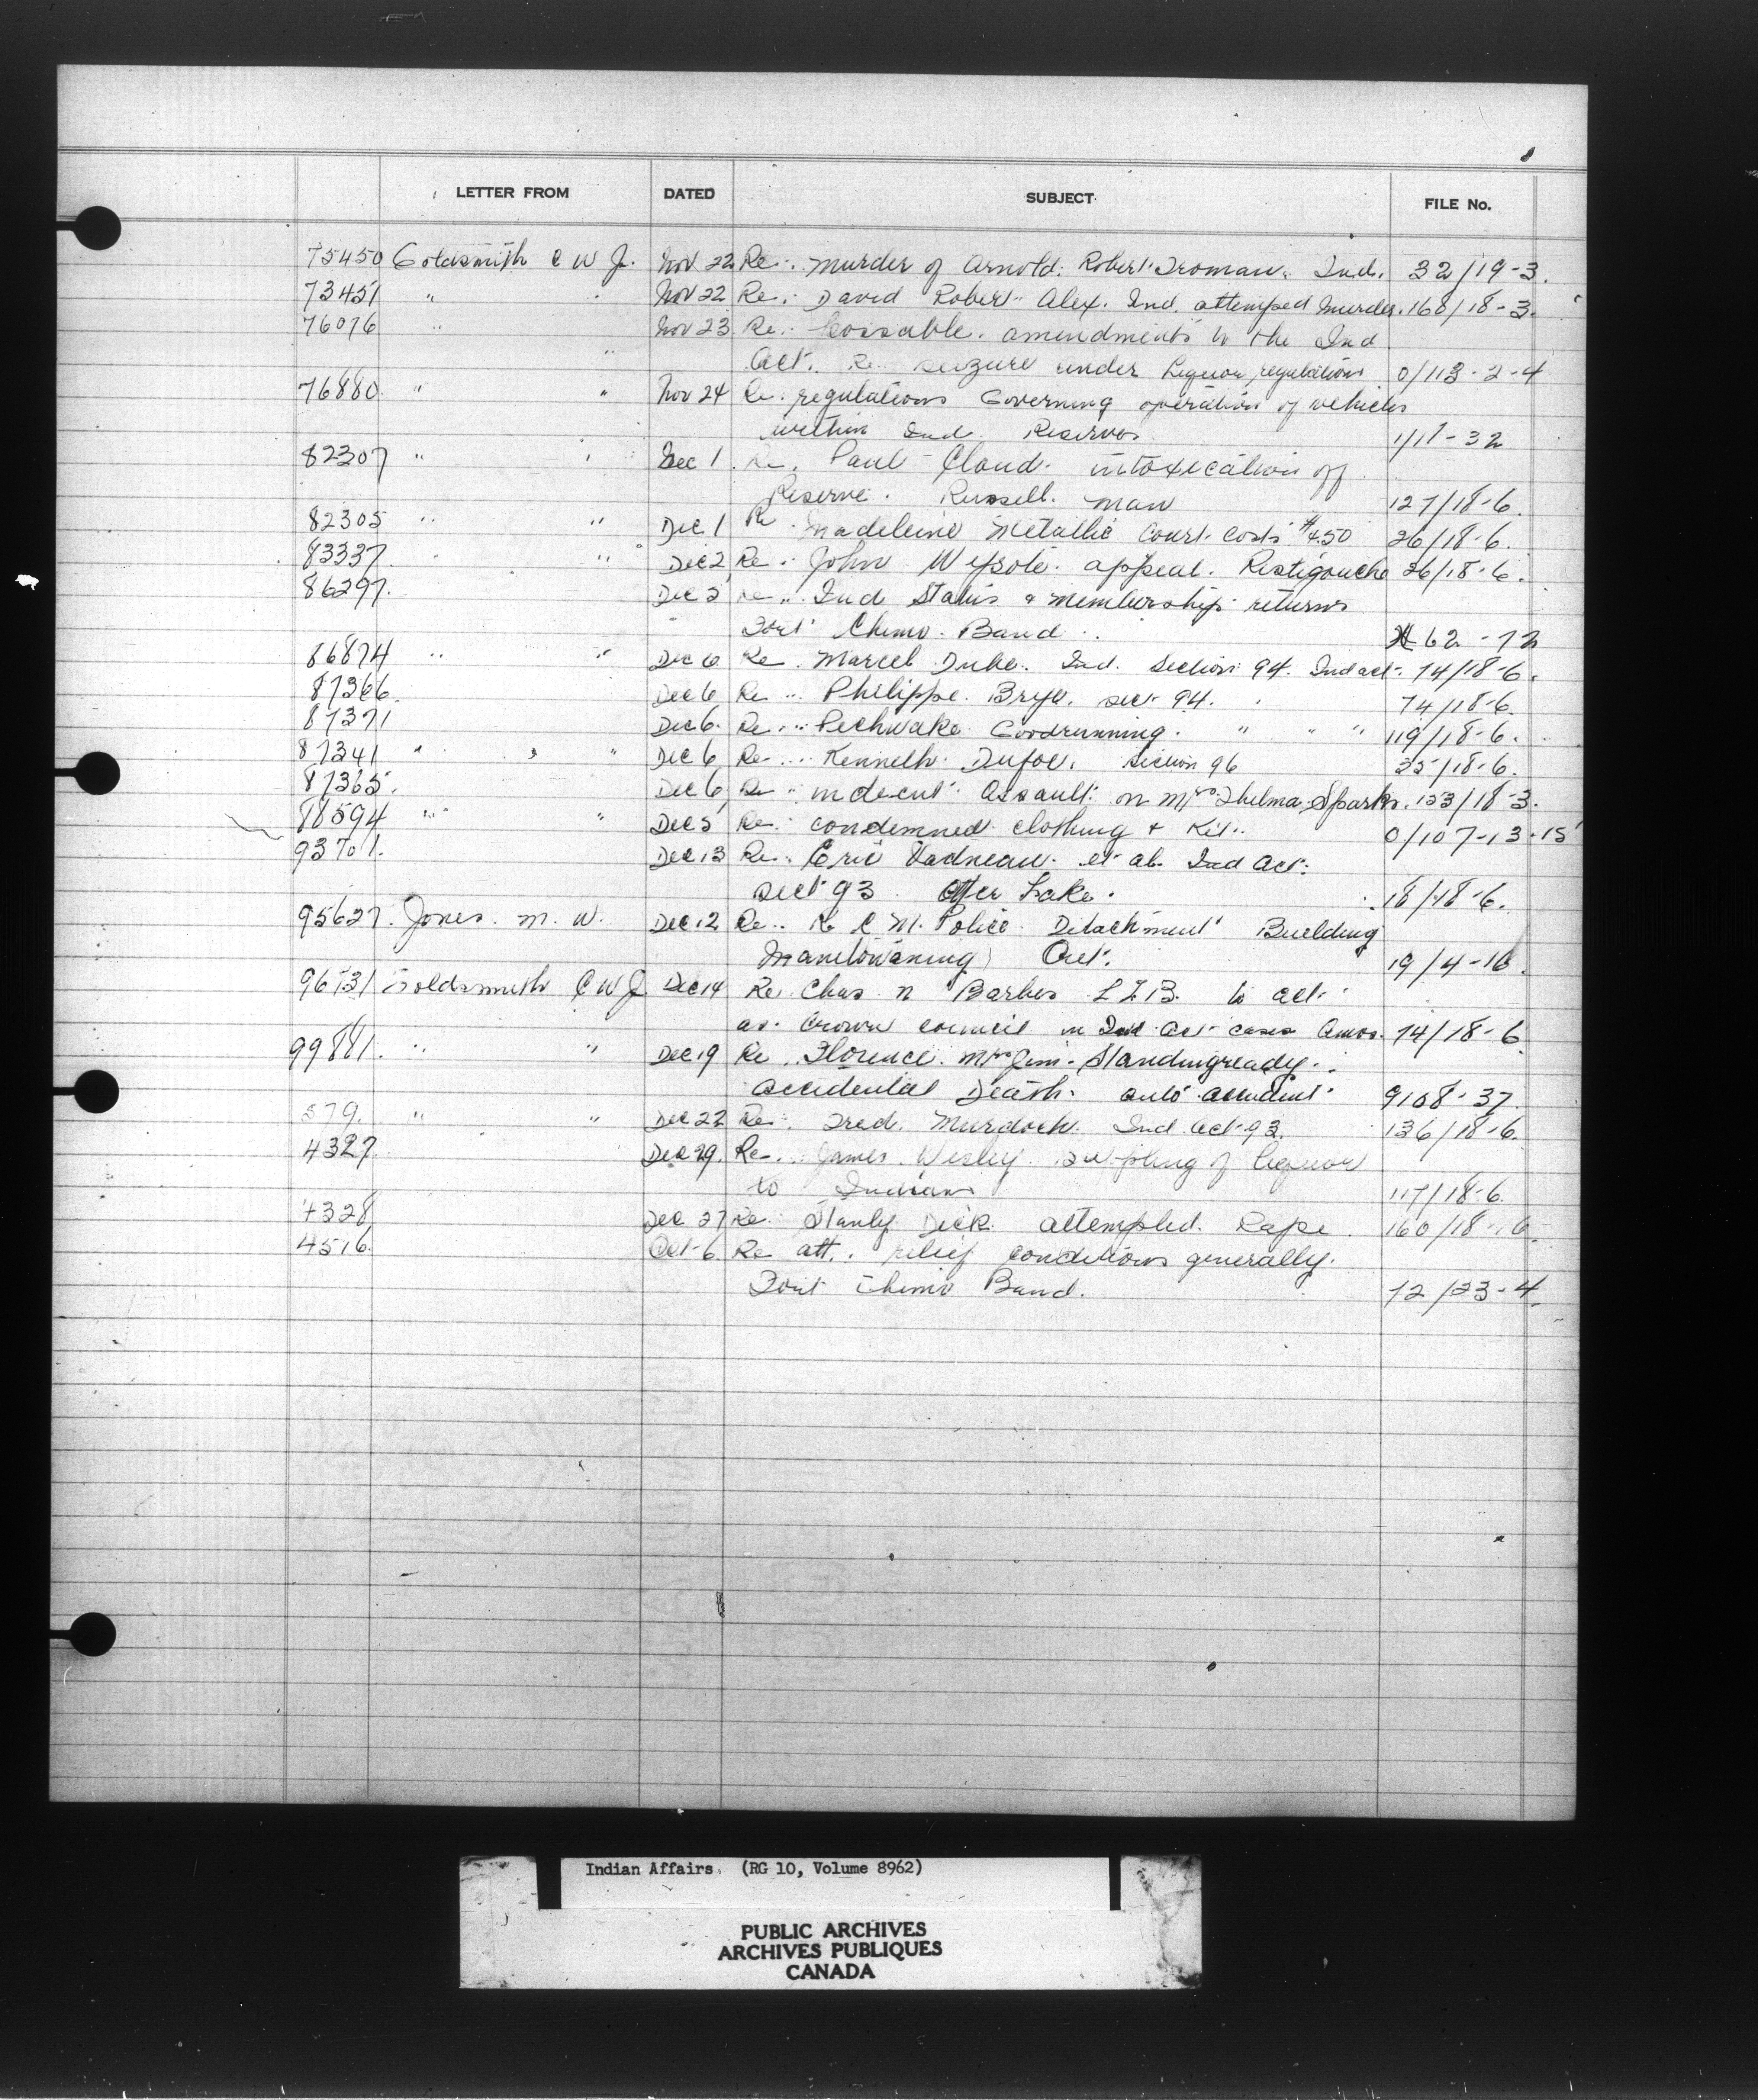 LETTER FROM DATED SUBJECT FILE No.
75450 Goldsmith C W J. Nov 22 Re. Murder of Arnold Robert Ind. 32/19-3.
73451 " Nov 22 Re. David Robert Alex. Ind. attemped Murder. 168/18-3.
76076 " Nov 23 Re. Possable amendments to the Ind
" Act. Re seizure under Liquor regulations 0/113-2-4
76880 " " Nov 24 Re. regulations Governing operation of vehicles
within Ind. Reserves 1/18-32
82307 " " Dec 1 Re. Paul Claud. intoxication off
Reserve. Russell. man 127/18-6.
82305 " " Dec 1 Re. Madeleine Metallic Court costs $4.50 26/18-6.
83337 " " Dec 2 Re. John appeal. Restigouche 26/18-6.
86297. Dec 5 Re. Ind Status & membership returns
Fort Chimo Band 62-72
86874 " " Dec 6 Re. Marcel Dube. Ind. Section 94. Ind act. 74/18-6.
87366 Dec 6 Re Philippe. sec. 94. 74/18-6.
87371 Dec 6. Re. Goodrunning. " " " 119/18-6.
87341 " " Dec 6 Re. Kenneth Dufoe. Section 96 35/18-6.
87365. Dec 6 Re indecent Assault on Mrs Thelma Sparks. 123/18-3.
88594 " " Dec 5 Re. condemned clothing & Kit. 0/107-13-15
93701. Dec 13 Re. Eric et al Ind Act.
Sect 93 Otter Lake. 18/18-6.
95627. Jones. M. W. Dec 12 Re. R C M. Police Detachment Building
Manitowaning Ont. 19/4-16.
96731 Goldsmith C W J Dec 14 Re. Chas. N Barbes LLB. to act
as Crown council in Ind Act cases Amos. 74/18-6
99881. " " Dec 19 Re. Florence. Mrs Jim Standingready.
accidental Death. auto accident 9108-37.
579. " " Dec 22 Re. Fred. Murdock. Ind. Act. 93. 136/18-6.
4327. Dec 29. Re. James Wesley. Supplying of liquor
to Indians 117/18-6.
4328 Dec 27 Re. Stanly Dick attempted Rape. 160/18-6.
4516. Oct-6. Re att. relief conditions generally.
Fort Chimo Band. 72/23-4.
Indian Affairs. (RG 10, Volume 8962)
PUBLIC ARCHIVES
ARCHIVES PUBLIQUES
CANADA